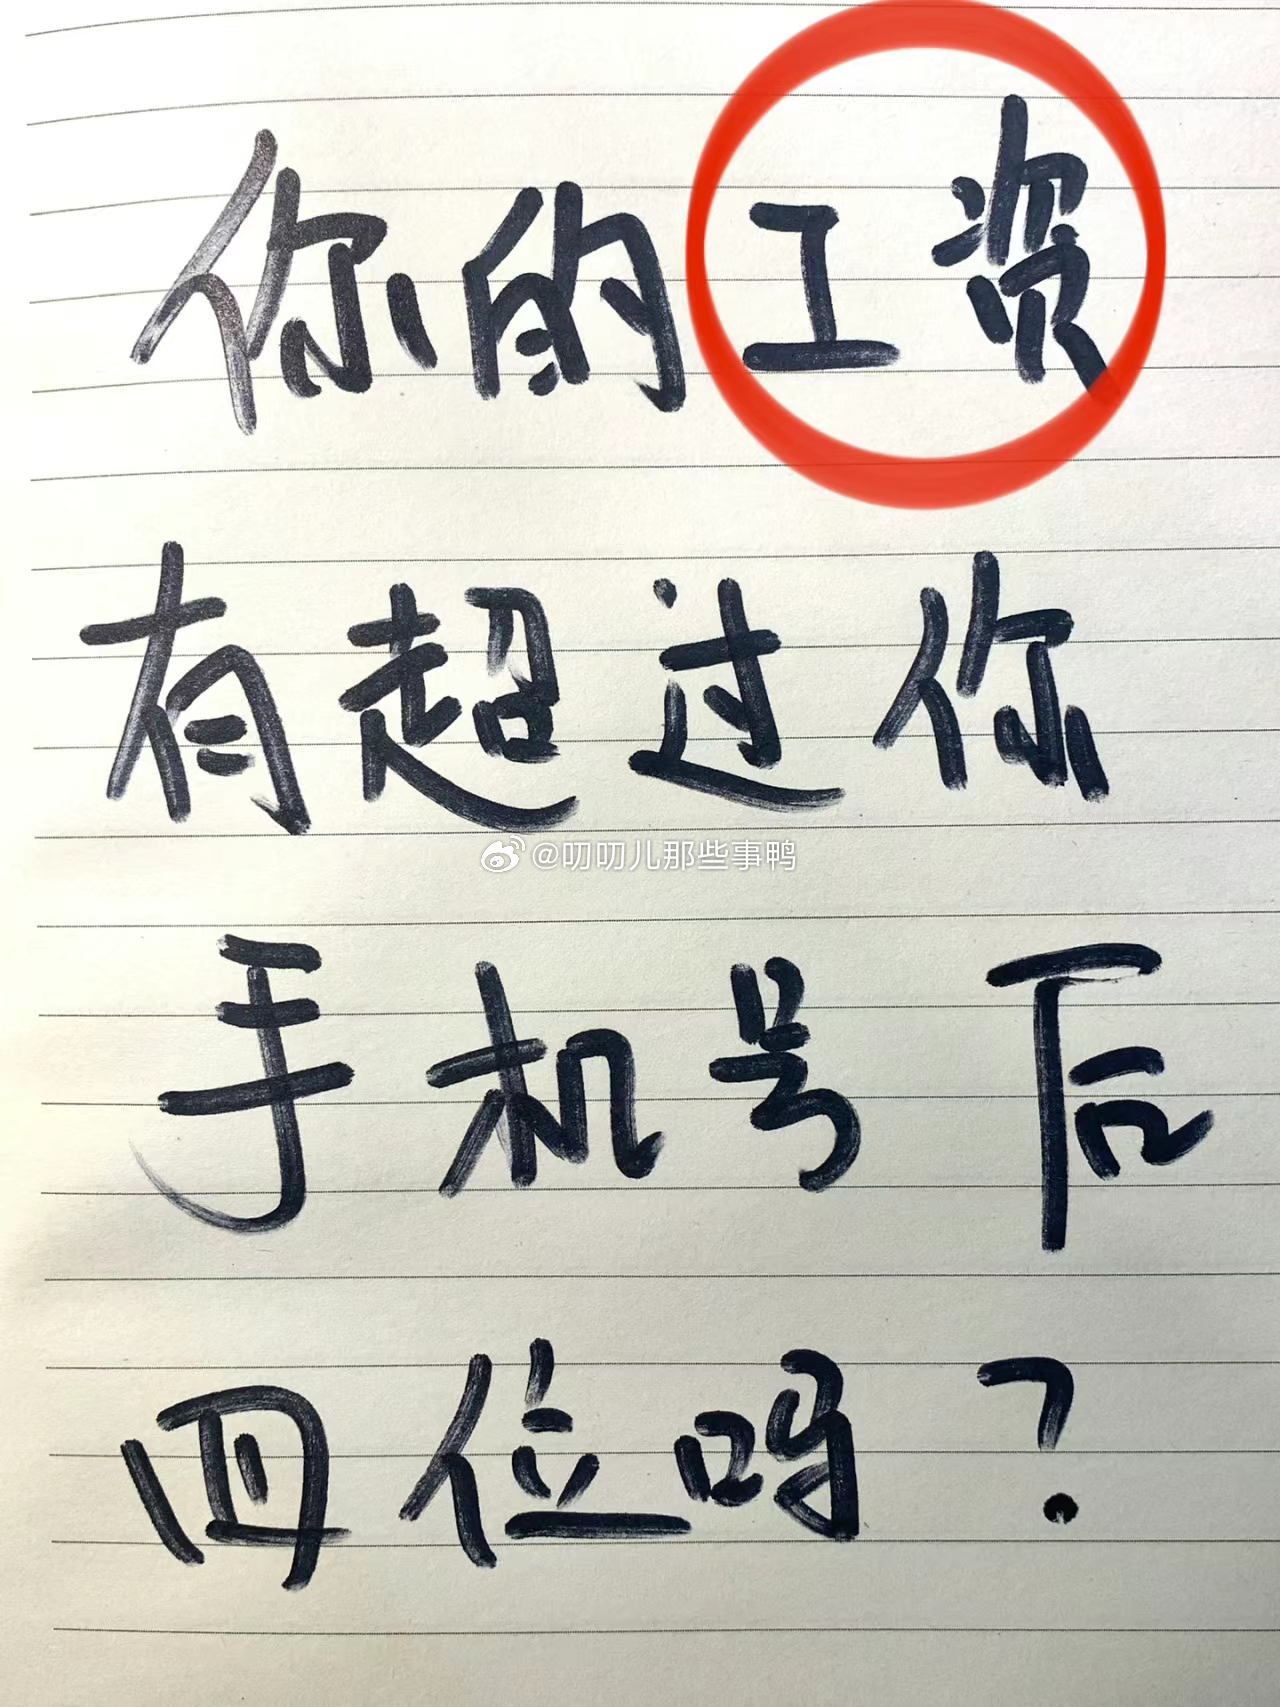 你的工资
有超过你
@叨叨儿那些事鸭
手机号后
四位吗?